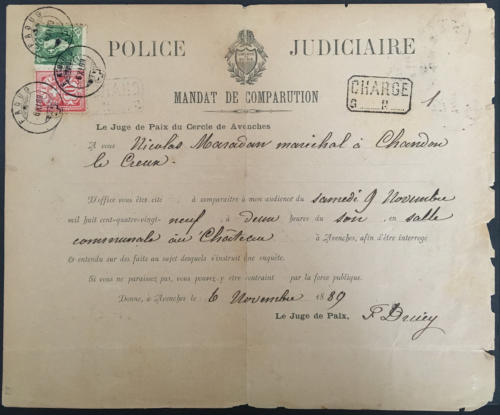 POLICE JUDICIAIRE
MANDAT DE COMPARUTION
CHARGÉ
N
1
Le Juge de Paix du Cercle de Avenches
A vous Nicolas Maradan maréchal à Chandon
le Creux.
D'office vous êtes cité à comparaître à mon audience du samedi 9 Novembre
mil huit cent-quatre-vingt- neuf à deux heures du soir en salle
communale au Château à Avenches, afin d'être interrogé
& entendu sur des faits au sujet desquels s'instruit une enquête.
Si vous ne paraissez pas, vous pouvez y être contraint par la force publique.
Donné, à Avenches le 6 Novembre 1889
Le Juge de Paix,